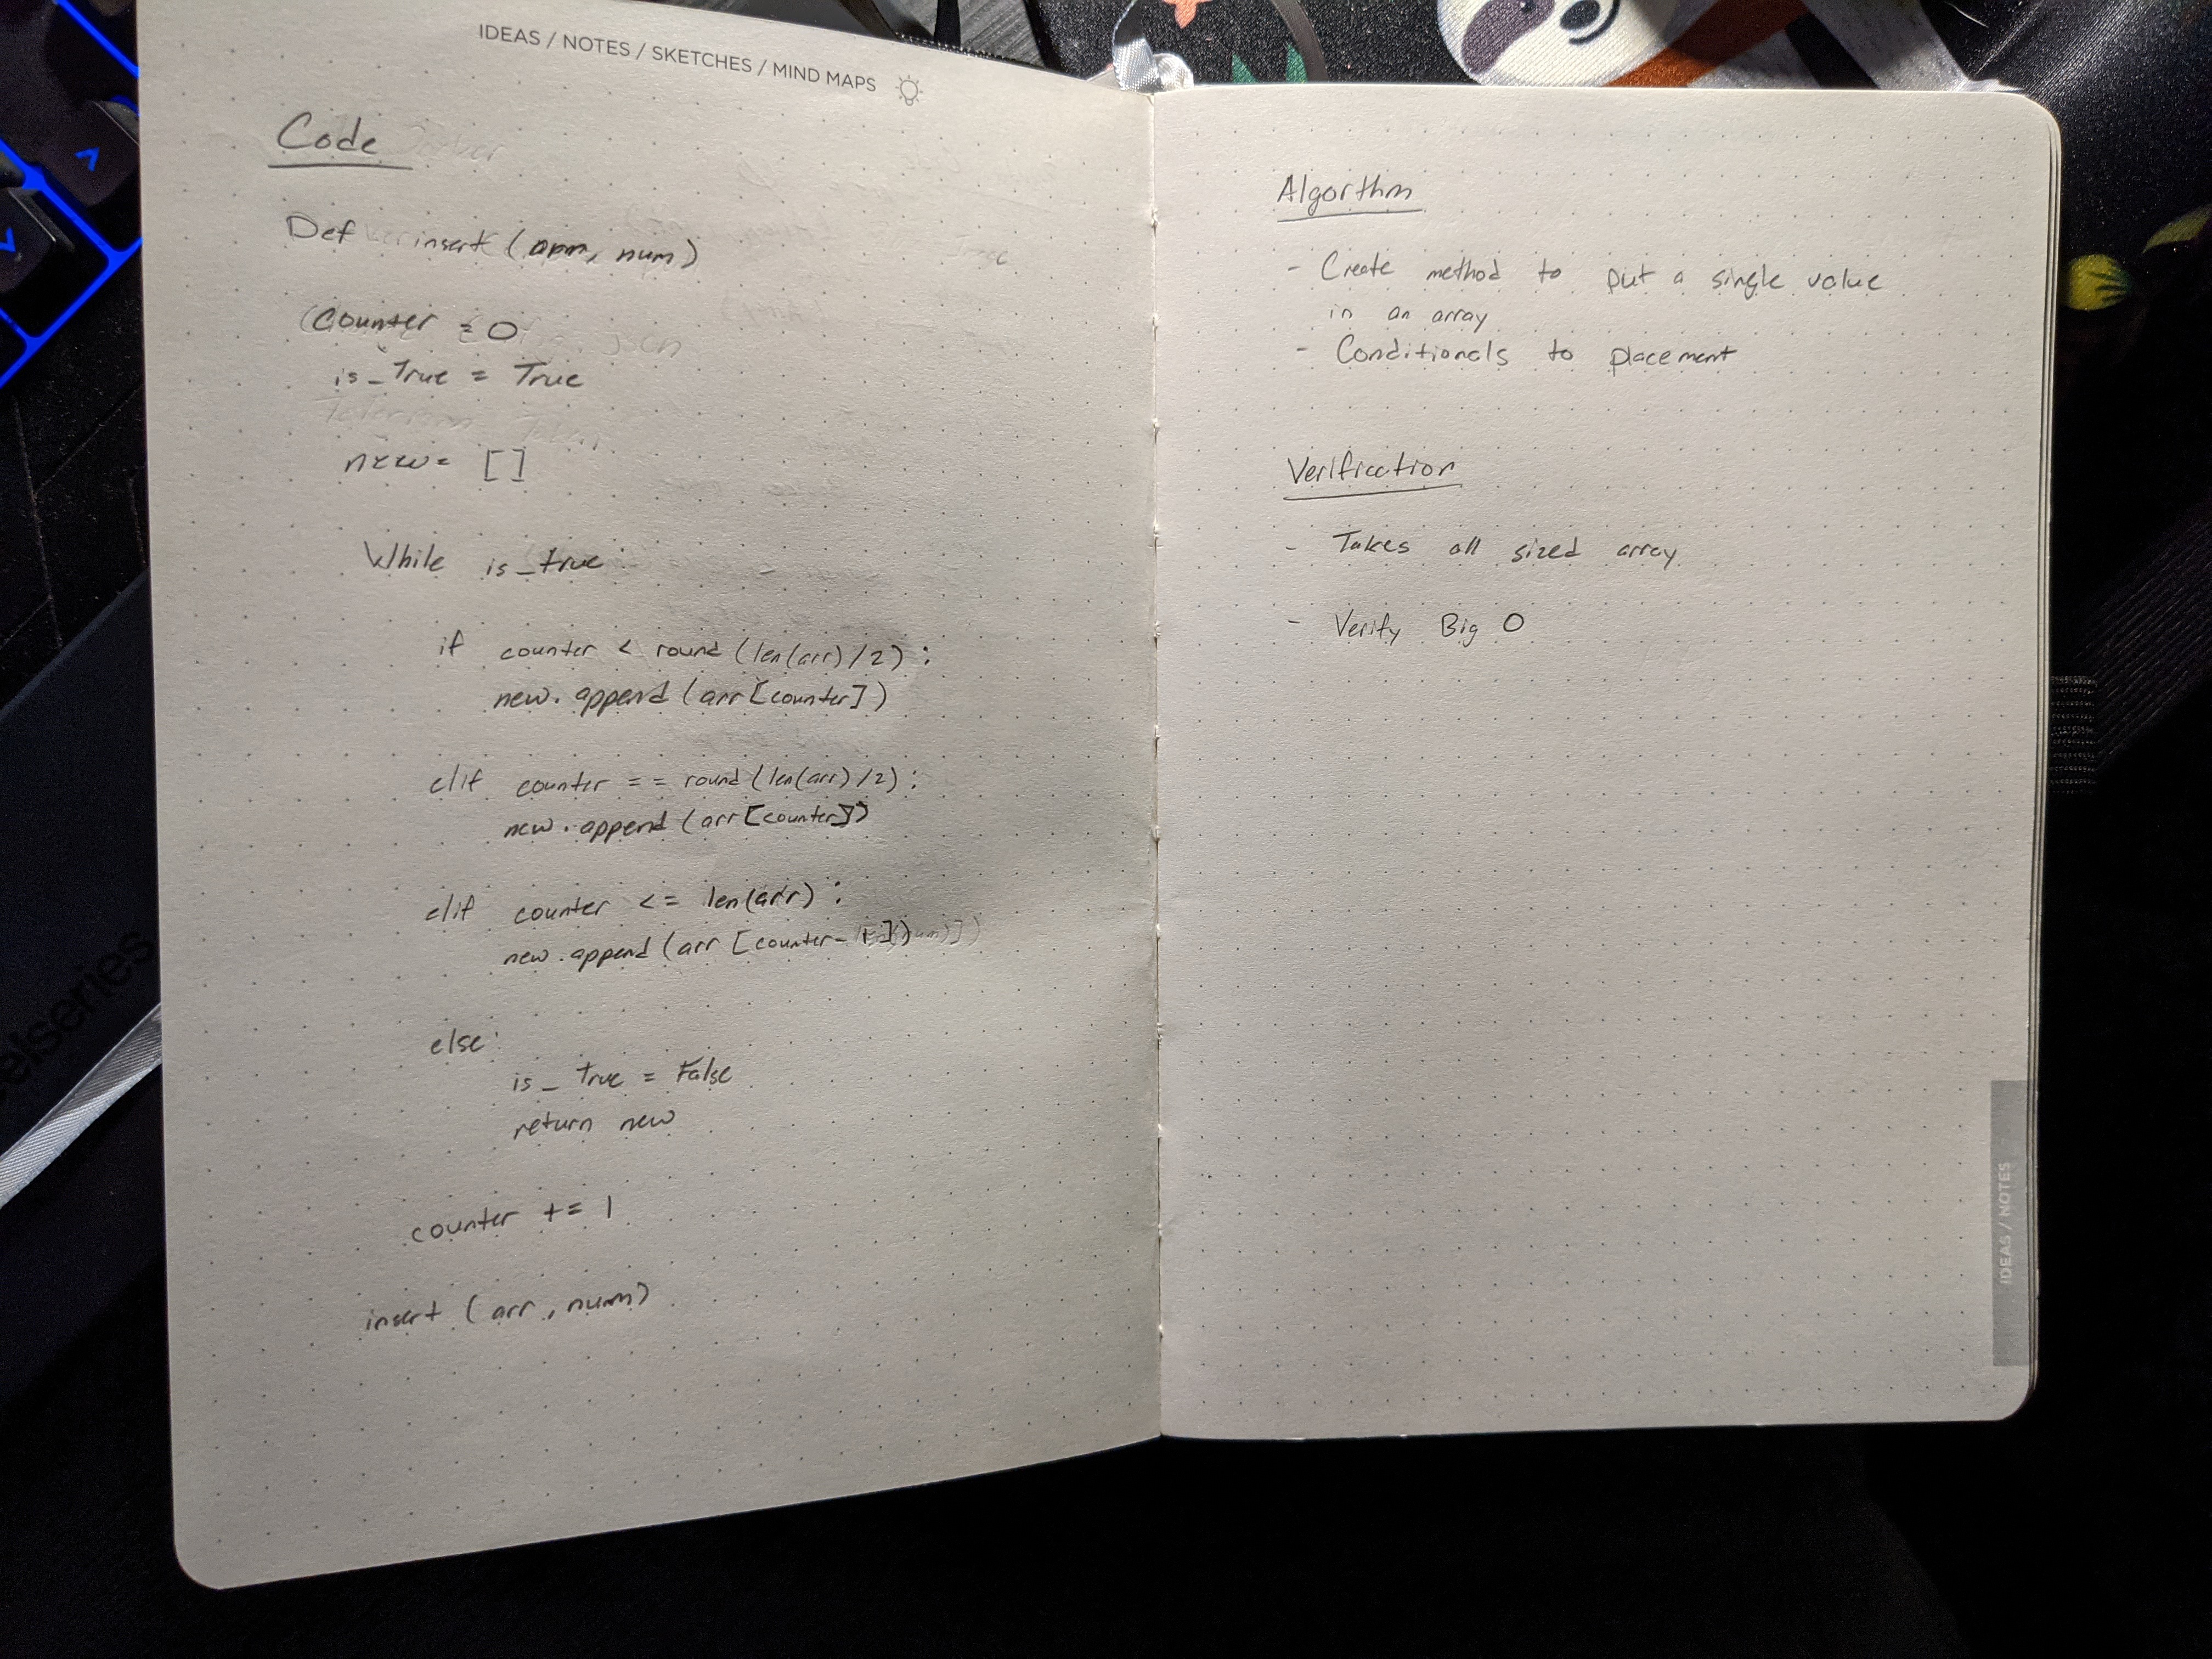 IDEAS / NOTES / SKETCHES / MIND MAPS
Code
Def insert (arr, num)
Counter = 0
is_True = True
new = [ ]
While is_true
if counter < round (len(arr) / 2) :
new.append (arr[counter])
elif counter == round (len(arr) / 2) :
new.append (arr[counter])
elif counter <= len(arr) :
new.append (arr [counter-
else:
is_ true = False
return new
counter += 1
insert (arr, num)
Algorthm
- Create method to put a single value
in an array
- Conditionals to placement
Verification
- Takes all sized array
- Verify Big O
IDEAS / NOTES
elseries